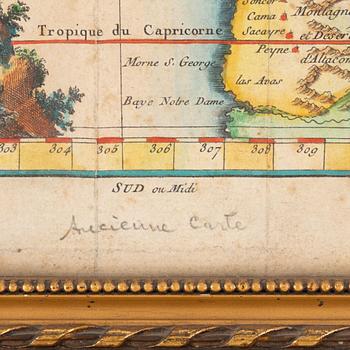 Soncor
Cama
Montagne
Tropique du Capricorne
Sacayre
et Desert
Peyne
d'Altacon
Morne S. George
las Avas
Baye Notre Dame
303 304 305 306 307 308 309
SUD ou Midi
Ancienne Carte